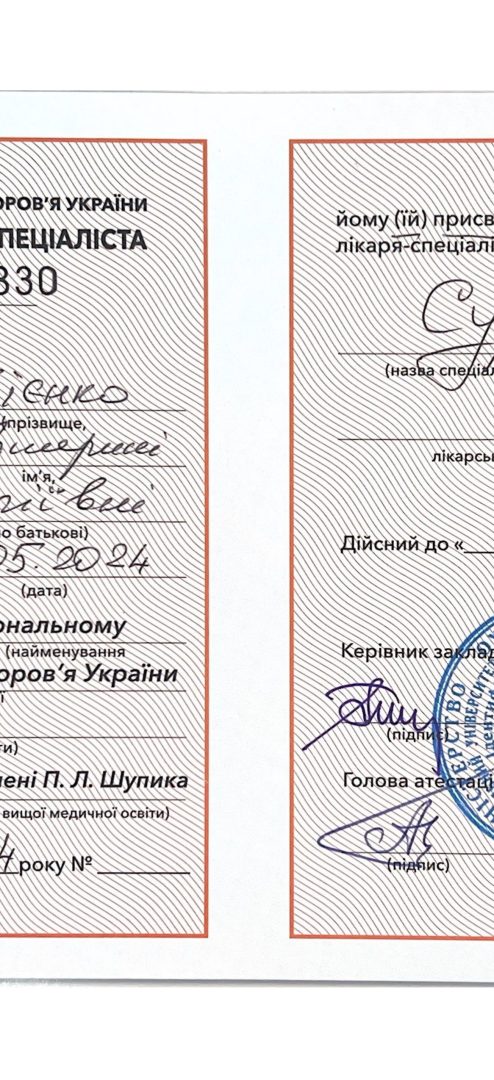 ОРОВ'Я УКРАЇНИ
ПЕЦІАЛІСТА
330
ієнко
(прізвище,
ім'я,
ії вні
о батькові)
05.2024
(дата)
ональному
(найменування
оров'я України
ії
ти)
мені П. Л. Шупика
вищої медичної освіти)
4 року № ______
йому (їй) присв
лікаря-спеціалі
Су
(назва спеціал
лікарсь
Дійсний до «__
Керівник заклад
(підпис)
Голова атестаці
(підпис)